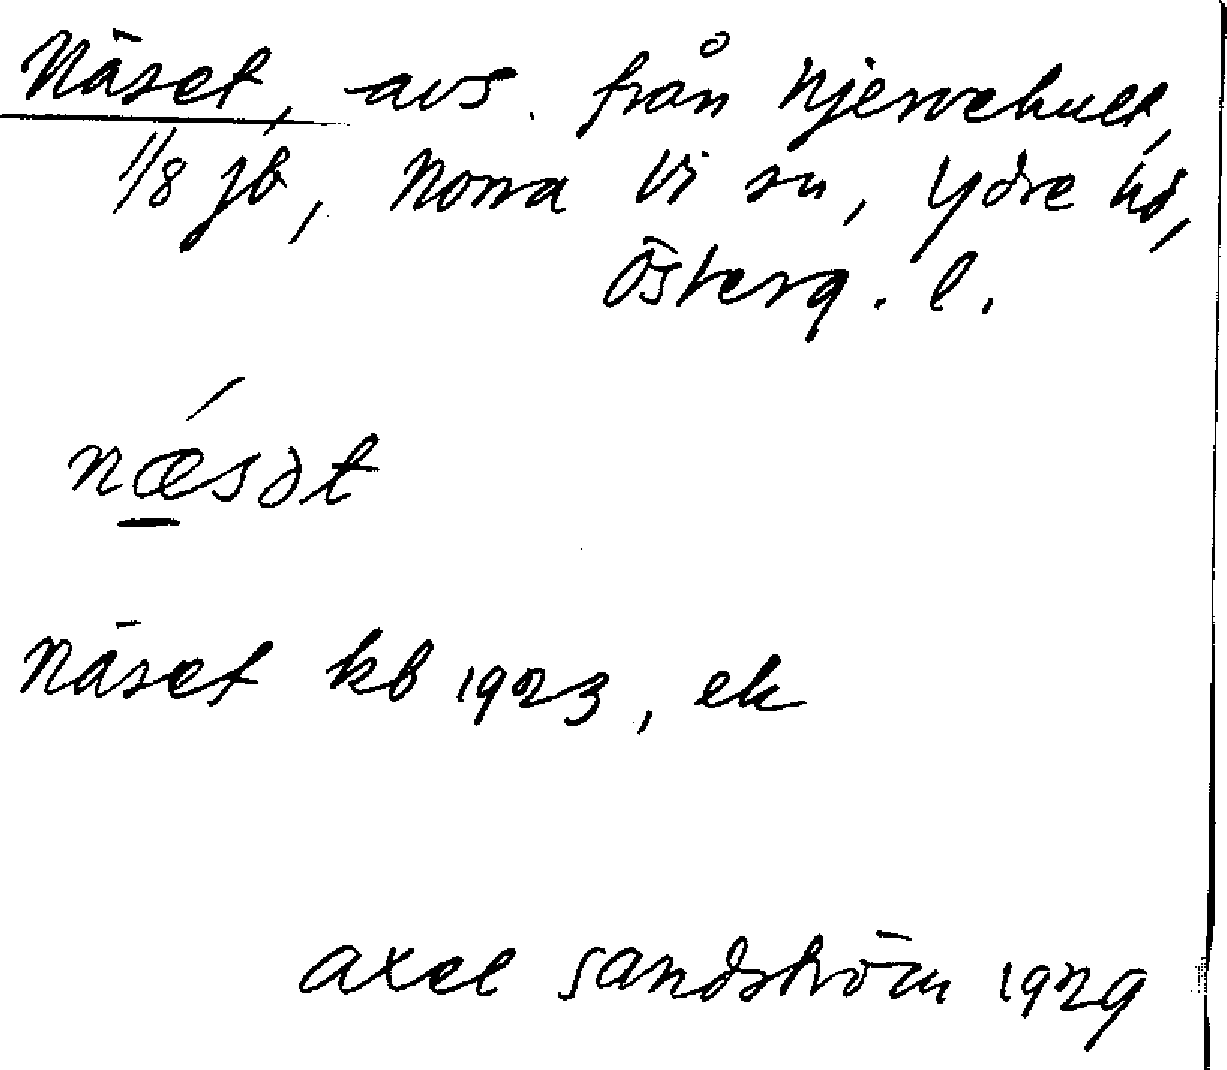 Näset, avs. från Njervehult,
1/8 jb, Norra Vi sn, Ydre hd,
Österg. l.
nǽ̱sət
Näset kb 1923, ek
Axel Sandström 1929